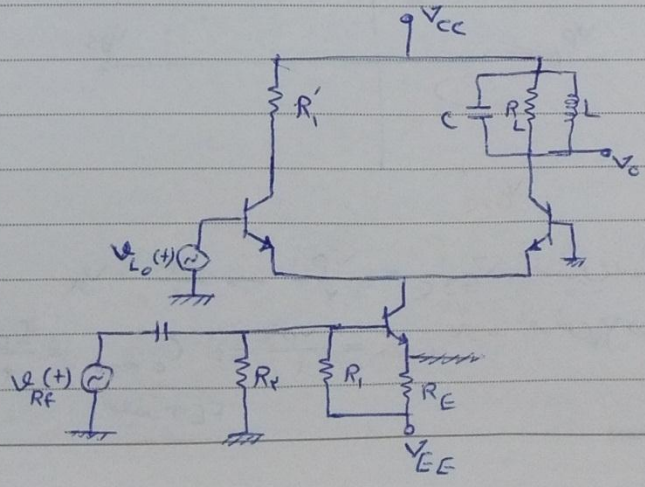 V_CC
R'_1
C
R_L
L
V_o
v_Lo(t)
v_Rf(t)
R_2
R_1
R_E
V_EE